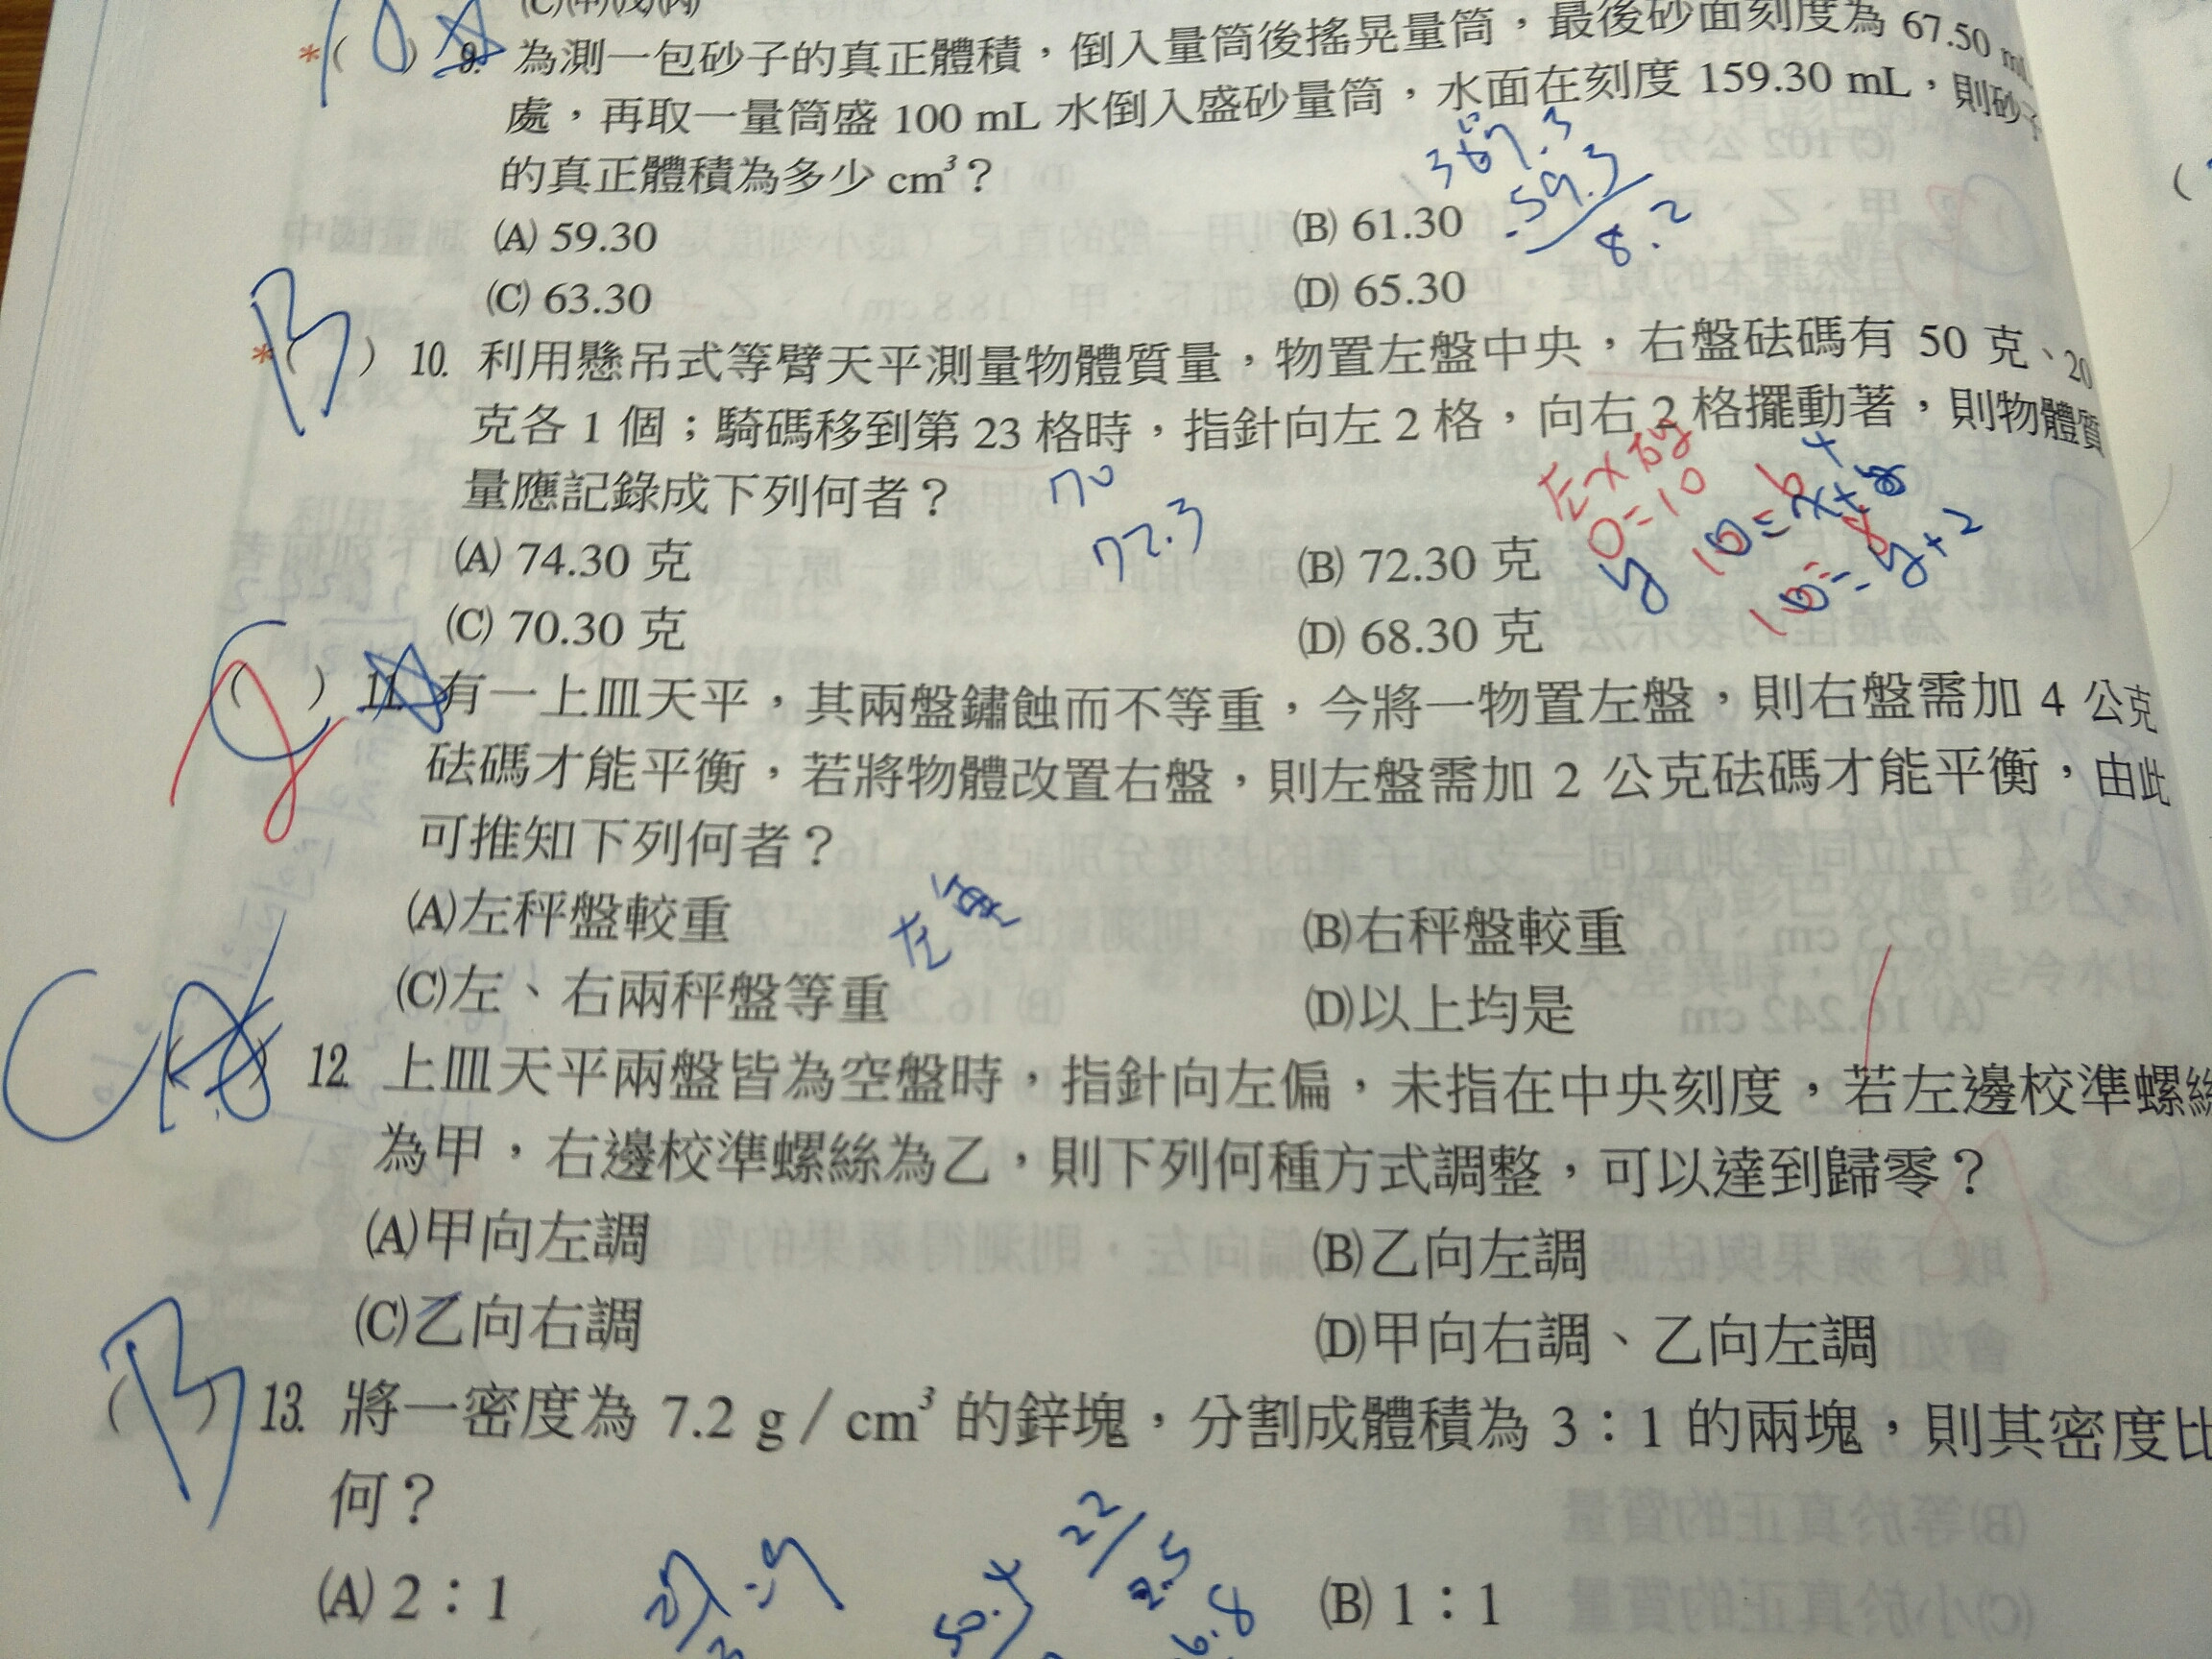 (C)(甲)(戊)(丙)
*( ) 9. 為測一包砂子的真正體積，倒入量筒後搖晃量筒，最後砂面刻度為 67.50 mL
處，再取一量筒盛 100 mL 水倒入盛砂量筒，水面在刻度 159.30 mL，則砂子
的真正體積為多少 cm³？
(A) 59.30 (B) 61.30
(C) 63.30 (D) 65.30
59.3
8.2
B
*( ) 10. 利用懸吊式等臂天平測量物體質量，物置左盤中央，右盤砝碼有 50 克、20
克各 1 個；騎碼移到第 23 格時，指針向左 2 格，向右 2 格擺動著，則物體質
量應記錄成下列何者？
70
72.3
(A) 74.30 克 (B) 72.30 克
(C) 70.30 克 (D) 68.30 克
( ) 11. 有一上皿天平，其兩盤鏽蝕而不等重，今將一物置左盤，則右盤需加 4 公克
砝碼才能平衡，若將物體改置右盤，則左盤需加 2 公克砝碼才能平衡，由此
可推知下列何者？
左重
(A)左秤盤較重 (B)右秤盤較重
(C)左、右兩秤盤等重 (D)以上均是
C
( ) 12. 上皿天平兩盤皆為空盤時，指針向左偏，未指在中央刻度，若左邊校準螺絲
為甲，右邊校準螺絲為乙，則下列何種方式調整，可以達到歸零？
(A)甲向左調 (B)乙向左調
(C)乙向右調 (D)甲向右調、乙向左調
B
( ) 13. 將一密度為 7.2 g／cm³ 的鋅塊，分割成體積為 3：1 的兩塊，則其密度比
何？
22
2.5
6.8
(A) 2：1 (B) 1：1